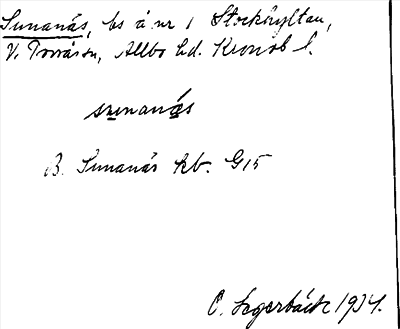 Sunanäs, bs å nr 1 Stockhyltan,
V. Torråsen, Allbo hd. Kronob l.
sunanäs
B. Sunanäs kb. G15
C. Segerbäck 1934.